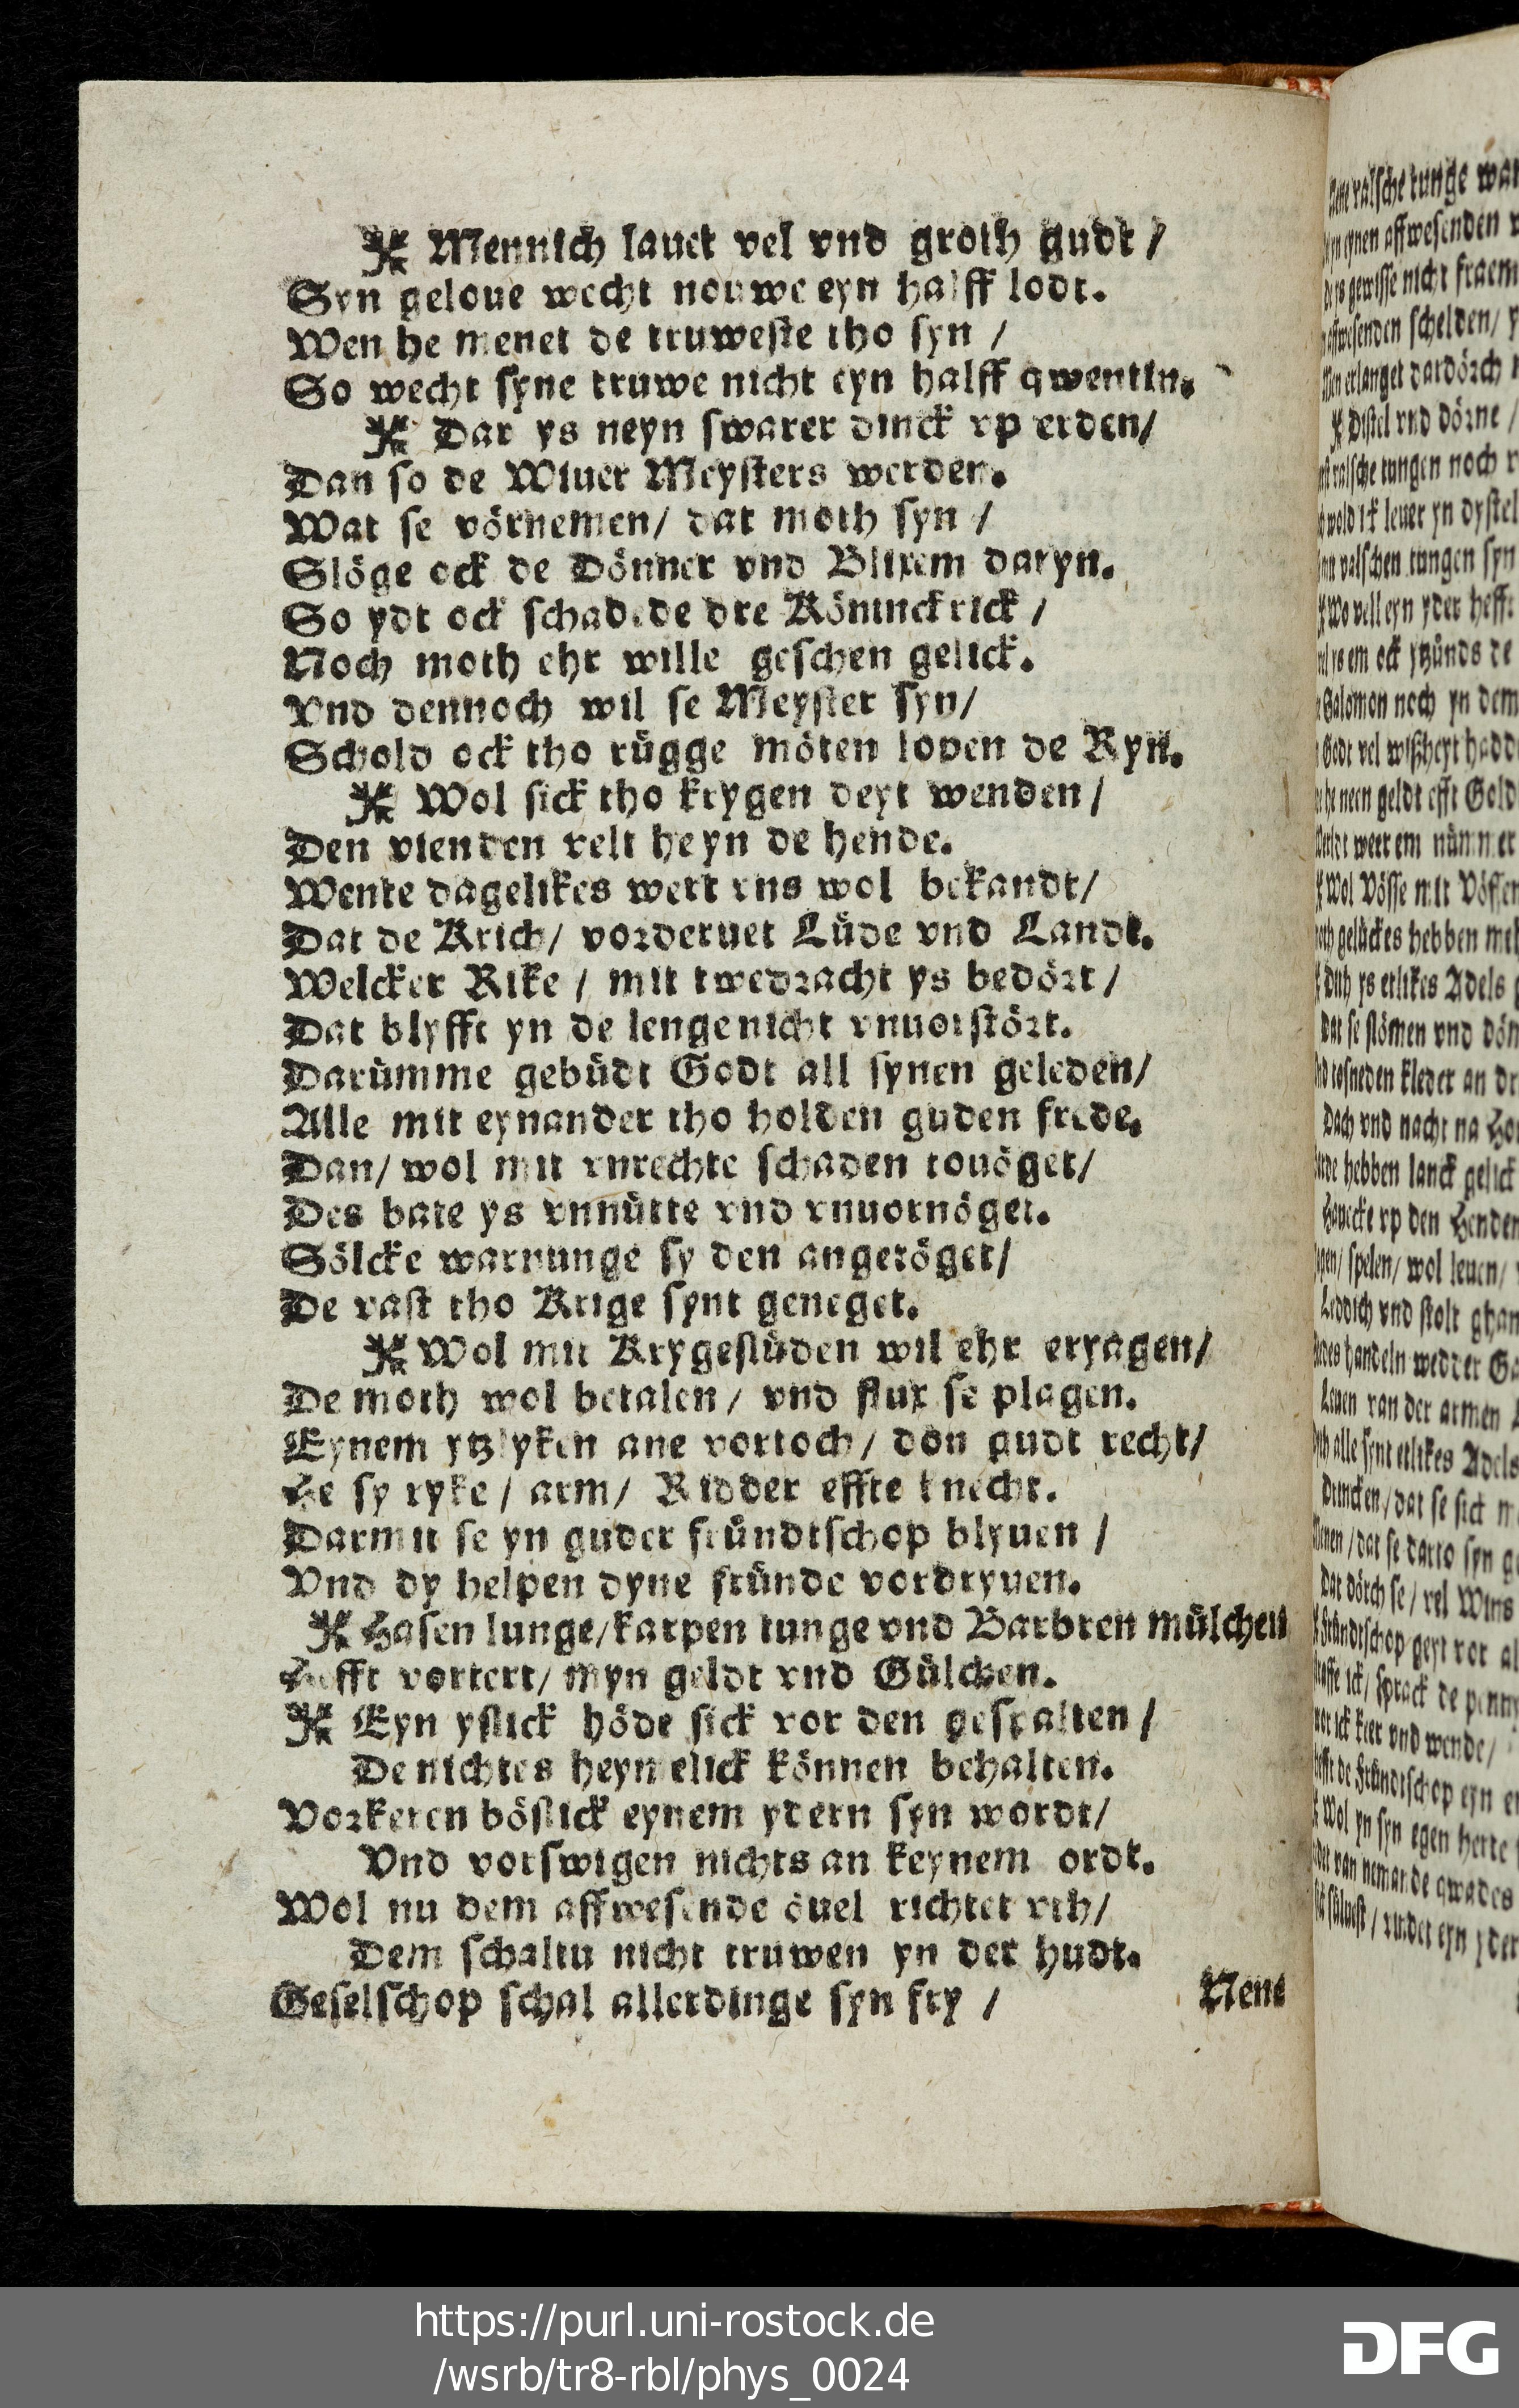 Mennich lauet vel vnd groth gudt /
Syn geloue wecht nouwe eyn halff lodt.
Wen he menet de truweste tho syn /
So wecht syne truwe nicht eyn halff qwentin.
Dar ys neyn swarer dinck vp erden/
Dan so de Wiuer Meysters werden.
Wat se vörnemen/ dat moth syn /
Slöge ock de Dönner vnd Blixem daryn.
So ydt ock schadede dre Köninckrick /
Noch moth ehr wille geschen gelick.
Vnd dennoch wil se Meyster syn/
Schold ock tho rügge möten lopen de Ryn.
Wol sick tho krygen deyt wenden /
Den vienden velt he yn de hende.
Wente dagelikes wert vns wol bekandt/
Dat de Krich/ vorderuet Lüde vnd Landt.
Welcker Rike / mit twedracht ys bedört /
Dat blyfft yn de lenge nicht vnuorstört.
Darümme gebüdt Godt all synen geleden/
Alle mit eynander tho holden guden frede.
Dan/ wol mit vnrechte schaden touöget/
Des bate ys vnnütte vnd vnuornöget.
Sölcke warnunge sy den angetöget/
De vast tho Krige synt geneget.
Wol mit Krygeslüden wil ehr eryagen/
De moth wol betalen / vnd flux se plagen.
Eynem ytzlyken ane vortoch / don gudt recht/
He sy ryke / arm/ Ridder effte knecht.
Darmit se yn guder fründtschop blyuen /
Vnd dy helpen dyne fründe vordryuen.
Hasen lunge/karpen tunge vnd Barbren mülchen
Hefft vortert/ myn geldt vnd Gülchen.
Eyn yslick höde sick vor den gespalten /
De nichtes heymelick können behalten.
Vorkeren böslick eynem ydern syn wordt/
Vnd vorswigen nichts an keynem ordt.
Wol nu dem affwesende öuel richtet vth/
Dem schaltu nicht truwen yn der hudt.
Geselschop schal allerdinge syn fry /
Nene
https://purl.uni-rostock.de
/wsrb/tr8-rbl/phys_0024
DFG